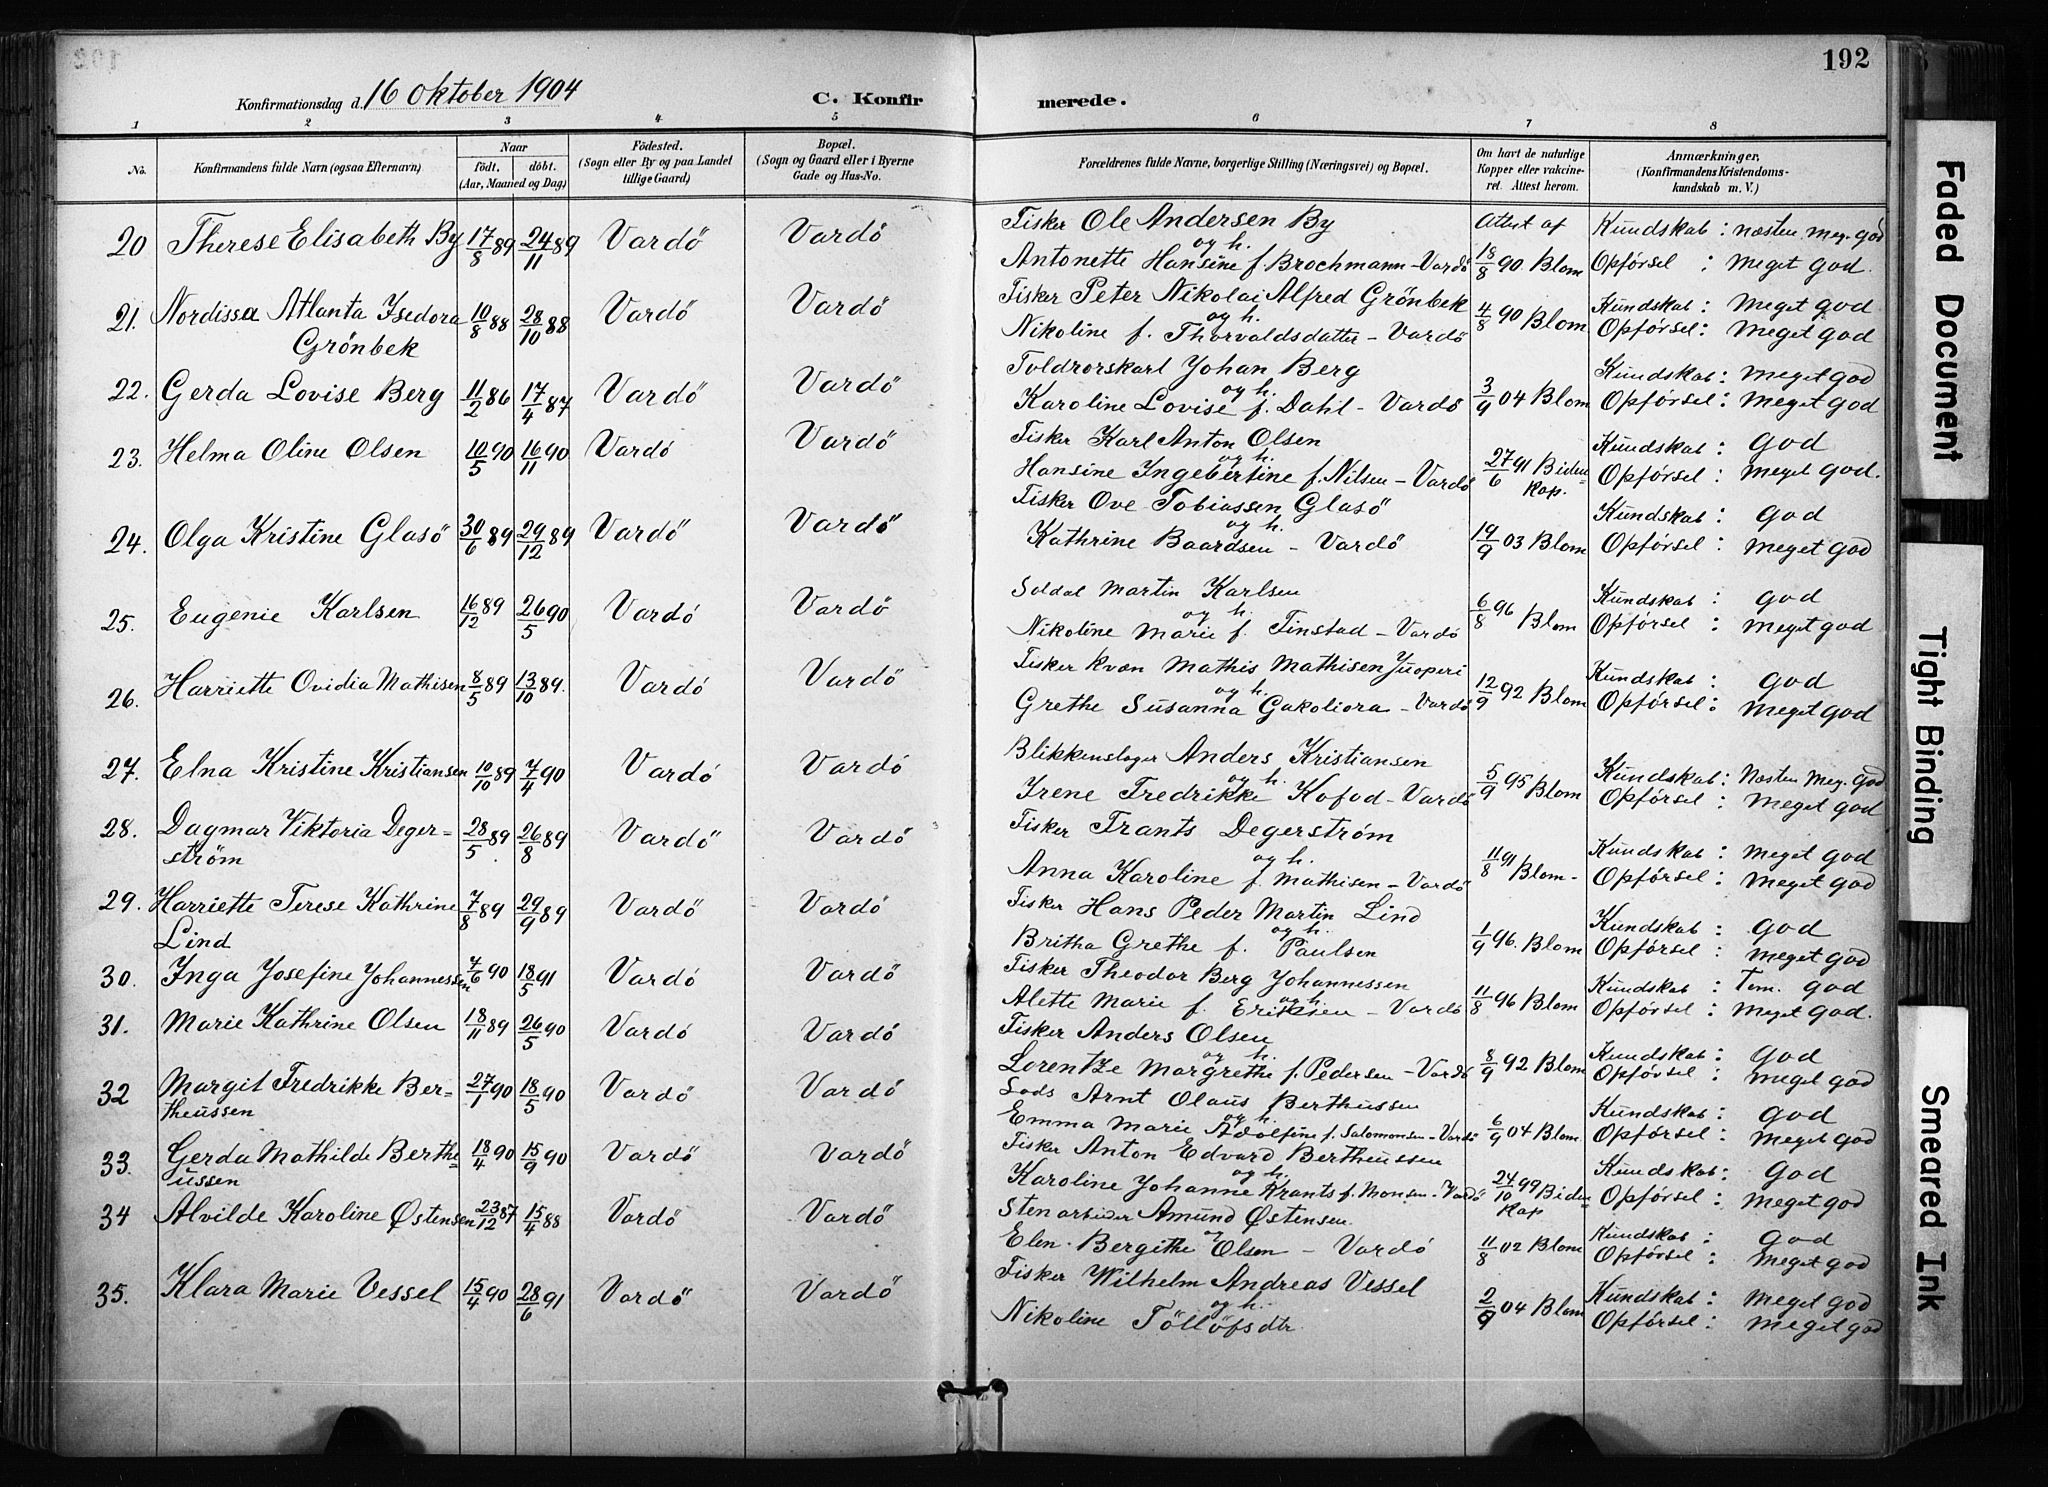 192
Konfirmationsdag d. 16 Oktober 1904 C. Konfirmerede.
1 2 3 4 5 6 7 8
No. Konfirmandens fulde Navn (ogsaa Efternavn) Naar født. døbt. (Aar, Maaned og Dag) Fødested. (Sogn eller By og paa Landet tillige Gaard) Bopæl. (Sogn og Gaard eller i Byerne Gade og Hus-No. Forældrenes fulde Navne, borgerlige Stilling (Næringsvei) og Bopæl. Om havt de naturlige Kopper eller vakcineret. Attest herom. Anmærkninger. (Konfirmandens Kristendomskundskab m. V.)
20 Therese Elisabeth By 17/8 89 24/11 89 Vardö Vardö Fisker Ole Andersen By Attest af Kundskab: næsten meg. god
og h.
Antonette Hansine f. Brochmann - Vardö 18/8 90. Blom Opförsel: meget god.
21. Nordissa Atlanta Isedora 10/8 88 28/10 88 Vardö Vardö Fisker Peter Nikolai Alfred Grönbek 4/8 90 Blom Kundskab: meget god
Grönbek og h.
Nikoline f. Thorvaldsdatter - Vardö Opförsel: meget god
22. Gerda Lovise Berg 11/2 86 17/4 87 Vardö Vardö Toldrorskarl Johan Berg Kundskab: meget god
og h.
Karoline Lovise f. Dahl - Vardö 3/9 04 Blom Opförsel: meget god
23. Helma Oline Olsen 10/5 90 16/11 90 Vardö Vardö Fisker Karl Anton Olsen Kundskab: god
og h.
Hansine Ingebertine f. Nilsen - Vardö 27/6 91 Biden= Opförsel: meget god.
kap.
24. Olga Kristine Glasö 30/6 89 29/12 89 Vardö Vardö Fisker Ove Tobiassen Glasö Kundskab: god
og h.
Kathrine Baardsen - Vardö 19/9 03 Blom Opförsel: meget god
25. Eugenie Karlsen 16/12 89 26/5 90 Vardö Vardö Soldat Martin Karlsen Kundskab: god
og h.
Nikoline Marie f. Finstad - Vardö 6/8 96 Blom Opförsel: meget god
26. Harriette Ovidia Mathisen 8/5 89 13/10 89. Vardö Vardö Fisker kvæn Mathis Mathisen Juoperi Kundskab: god
og h.
Grethe Susanna Gakoliora - Vardö 12/9 92 Blom Opförsel: meget god
27. Elna Kristine Kristiansen 10/10 89 7/4 90 Vardö Vardö Blikkenslager Anders Kristiansen Kundskab: Næsten meg. god
og h.
Irene Fredrikke Kofod - Vardö 5/9 95 Blom Opförsel: meget god
28. Dagmar Viktoria Deger= 28/5 89 26/8 89 Vardö Vardö Fisker Frants Degerström Kundskab: meget god
ström og h.
Anna Karoline f. Mathisen - Vardö 11/8 91 Blom - Opförsel: meget god
29. Harriette Terese Kathrine 7/8 89 29/9 89 Vardö Vardö Fisker Hans Peder Martin Lind Kundskab: god
Lind og h.
Britha Grethe f. Paulsen 1/9 96. Blom Opförsel: meget god
30. Inga Josefine Johannessen 4/6 90 18/5 91 Vardö Vardö Fisker Theodor Berg Johannessen Kundskab: Tem. god
og h.
Alette Marie f. Eriksen - Vardö 11/8 96 Blom Opförsel: meget god.
31. Marie Kathrine Olsen 18/11 89 26/5 90 Vardö Vardö Fisker Anders Olsen Kundskab: god
og h.
Lorentze Margrethe f. Pedersen - Vardö 8/9 92 Blom Opförsel: meget god
32 Margit Fredrikke Ber= 27/1 90 18/5 90 Vardö Vardö Lods Arnt Olaus Berthussen Kundskab: god
theussen og h.
Emma Marie Adolfine f. Salomonsen - Vardö 6/9 04 Blom. Opförsel: meget god
33. Gerda Mathilde Berthe= 18/4 90 15/9 90 Vardö Vardö Fisker Anton Edvard Bertheussen Kundskab: god
ussen og h.
Karoline Johanne Krants f. Monsen - Vardö 24/10 99 Biden= Opförsel: meget god
kap
34 Alvilde Karoline Østensen 23/12 87 15/4 88 Vardö Vardö Stenarbeider Amund Østensen Kundskab: god
og
Elen Bergithe Olsen - Vardö 11/8 02 Blom Opförsel: meget god
35. Klara Marie Vessel 15/4 90 28/6 91 Vardö Vardö Fisker Wilhelm Andreas Vessel Kundskab: meget god
og h.
Nikoline Töllöfsdtr. 2/9 04 Blom Opförsel: meget god
Faded Document
Tight Binding
Smeared Ink